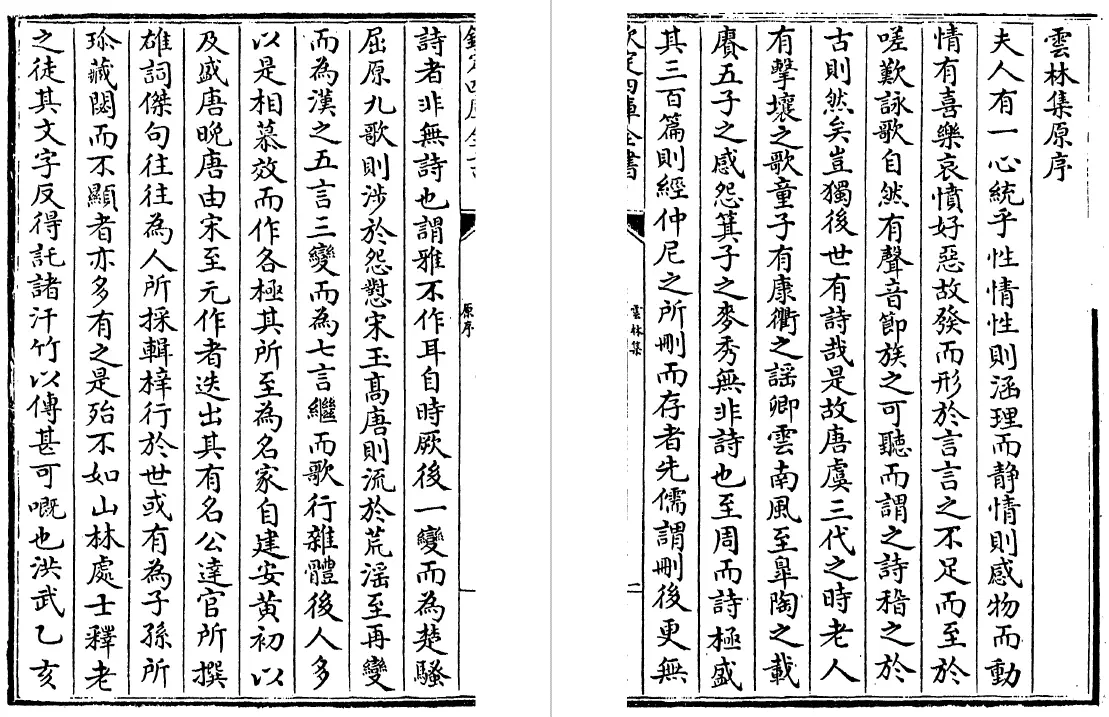 雲林集原序
夫人有一心統乎性情性則涵理而静情則感物而動
情有喜樂哀憤好惡故發而形於言言之不足而至於
嗟歎詠歌自然有聲音節族之可聽而謂之詩稽之於
古則然矣豈獨後世有詩哉是故唐虞三代之時老人
有擊壤之歌童子有康衢之謡卿雲南風至臯陶之載
賡五子之感怨箕子之麥秀無非詩也至周而詩極盛
其三百篇則經仲尼之所刪而存者先儒謂刪後更無
欽定四庫全書
雲林集
二
欽定四庫全書
原序
詩者非無詩也謂雅不作耳自時厥後一變而為楚騷
屈原九歌則涉於怨懟宋玉髙唐則流於荒淫至再變
而為漢之五言三變而為七言繼而歌行雜體後人多
以是相慕效而作各極其所至為名家自建安黄初以
及盛唐晚唐由宋至元作者迭出其有名公達官所撰
雄詞傑句往往為人所採輯梓行於世或有為子孫所
珎藏閟而不顯者亦多有之是殆不如山林處士釋老
之徒其文字反得託諸汗竹以傳甚可嘅也洪武乙亥